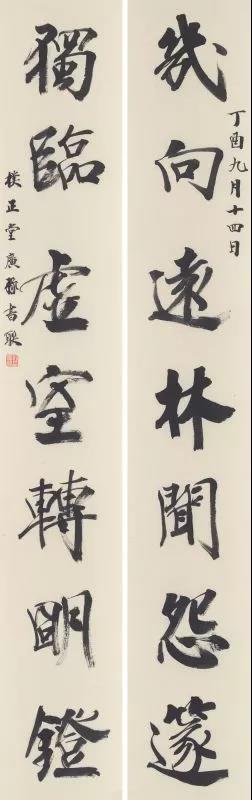 丁酉九月十四日
幾向遠林聞怨篴
獨臨虛室轉明鐙
樸正堂書聯